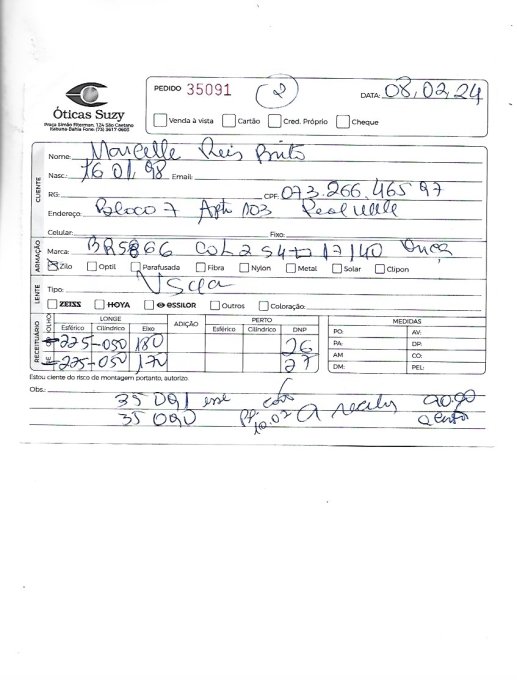 PEDIDO 35091 2 DATA: 08,02,24
Óticas Suzy
Praça Simão Fiterman, 124 São Caetano
Itabuna Bahia Fone: (73) 3617 0605
Venda à vista Cartão Cred. Próprio Cheque
CLIENTE
Nome: Marcelle Reis Brito
Nasc.: 16 01 98 Email:
RG: CPF: 073.266.465 97
Endereço: Bloco 7 Aptº 103
Celular: Fixo:
ARMAÇÃO
Marca: BR5866 COL2 54 17/140 Onça
Zilo Optil Parafusada Fibra Nylon Metal Solar Clipon
LENTE
Tipo:
ZEISS HOYA essilor Outros Coloração:
RECEITUÁRIO
OLHO LONGE ADIÇÃO PERTO MEDIDAS
Esférico Cilíndrico Eixo Esférico Cilíndrico DNP PO: AV:
-225 -050 180 26 PA: DP:
-225 -050 170 27 AM CO:
DM: PEL:
Estou ciente do risco de montagem portanto, autorizo.
Obs.:
35091 esse
35090 10.02 a receber 90,00